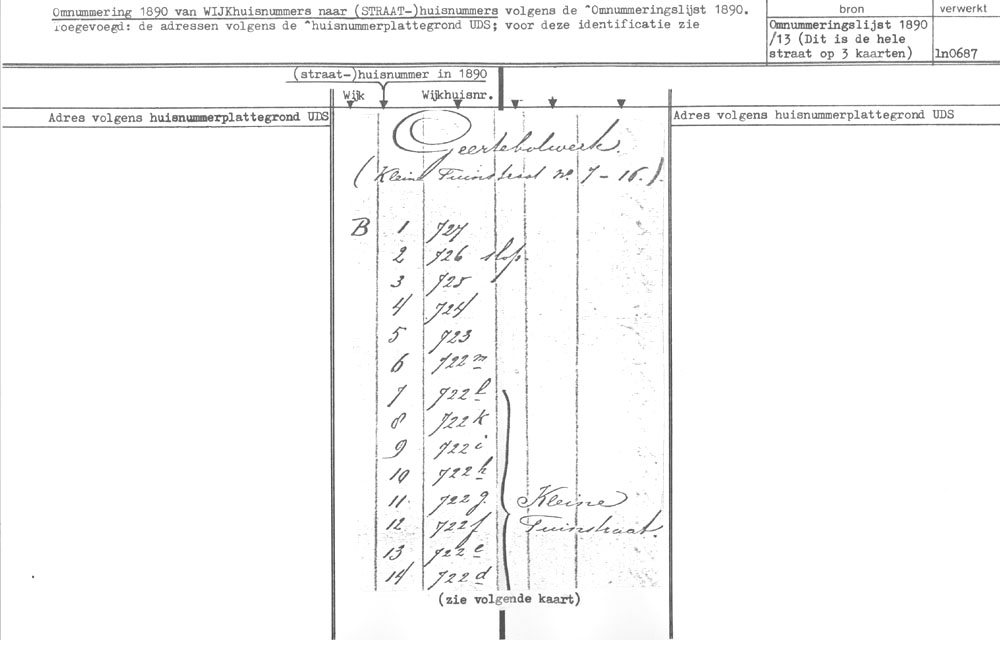 Omnummering 1890 van WIJKhuisnummers naar (STRAAT-)huisnummers volgens de ^Omnummeringslijst 1890.
Toegevoegd: de adressen volgens de ^huisnummerplattegrond UDS; voor deze identificatie zie
bron
Omnummeringslijst 1890
/13 (Dit is de hele
straat op 3 kaarten)
verwerkt
ln0687
(straat-)huisnummer in 1890
Wijk
Wijkhuisnr.
Adres volgens huisnummerplattegrond UDS
Adres volgens huisnummerplattegrond UDS
Geertebolwerk.
(Kleine Tuinstraat No. 7 - 16.).
B 1 727
2 726 slop.
3 725
4 724
5 723
6 722 m
7 722 l
8 722 k
9 722 i
10 722 h
11 722 g. Kleine
12 722 f Tuinstraat.
13 722 e
14 722 d
(zie volgende kaart)